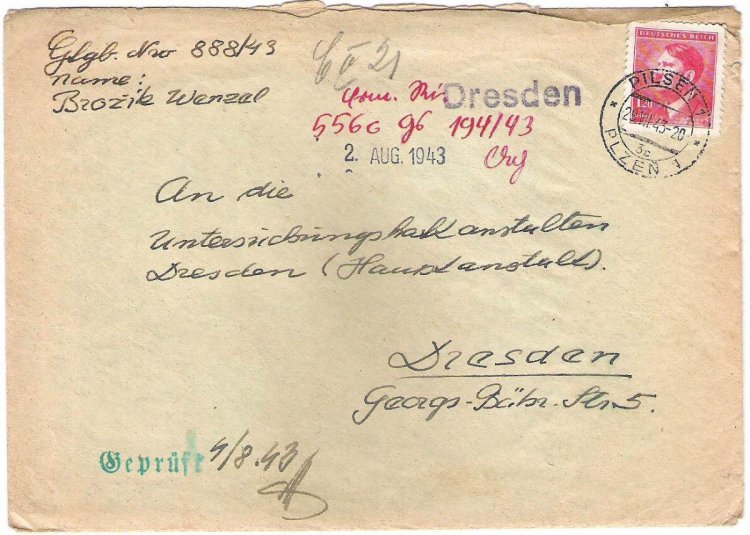 Gfgb. Nro 888/43
name:
Brožik Wenzal
Dresden
5560 g6 194/43
2. AUG. 1943
DEUTSCHES REICH
1.20
PILSEN 1
43-20
3c
PLZEŇ 1
An die
Untersuchungshaftanstalten
Dresden (Hauptanstalt).
Dresden
Georgs-Bähr-Str 5.
Geprüft 4/8.43